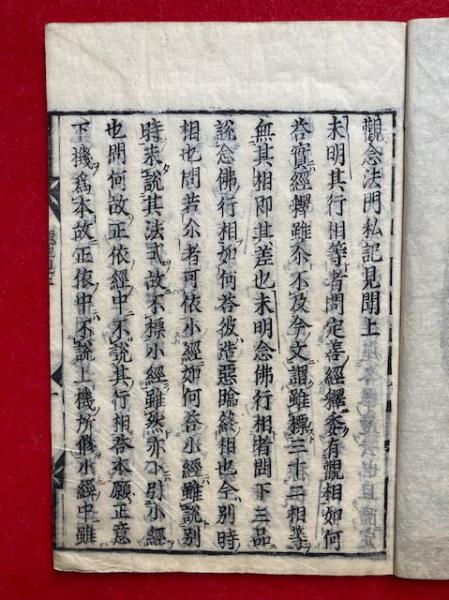 觀念法門私記見聞上
未明其行相等者問定善經釋委有觀相如何
答實經釋雖尒不及今文謂雖標三十二相等
無其相即其差也未明念佛行相者問下三品
說念佛行相如何答彼造惡臨終相也全別時
相也問若尒者可依小經如何答小經雖說別
時未說其法式故不標小經雖然亦小引小經
也問何故正依經中不說其行相答本願正意
下機爲本故正依中不說上機所修小經中雖